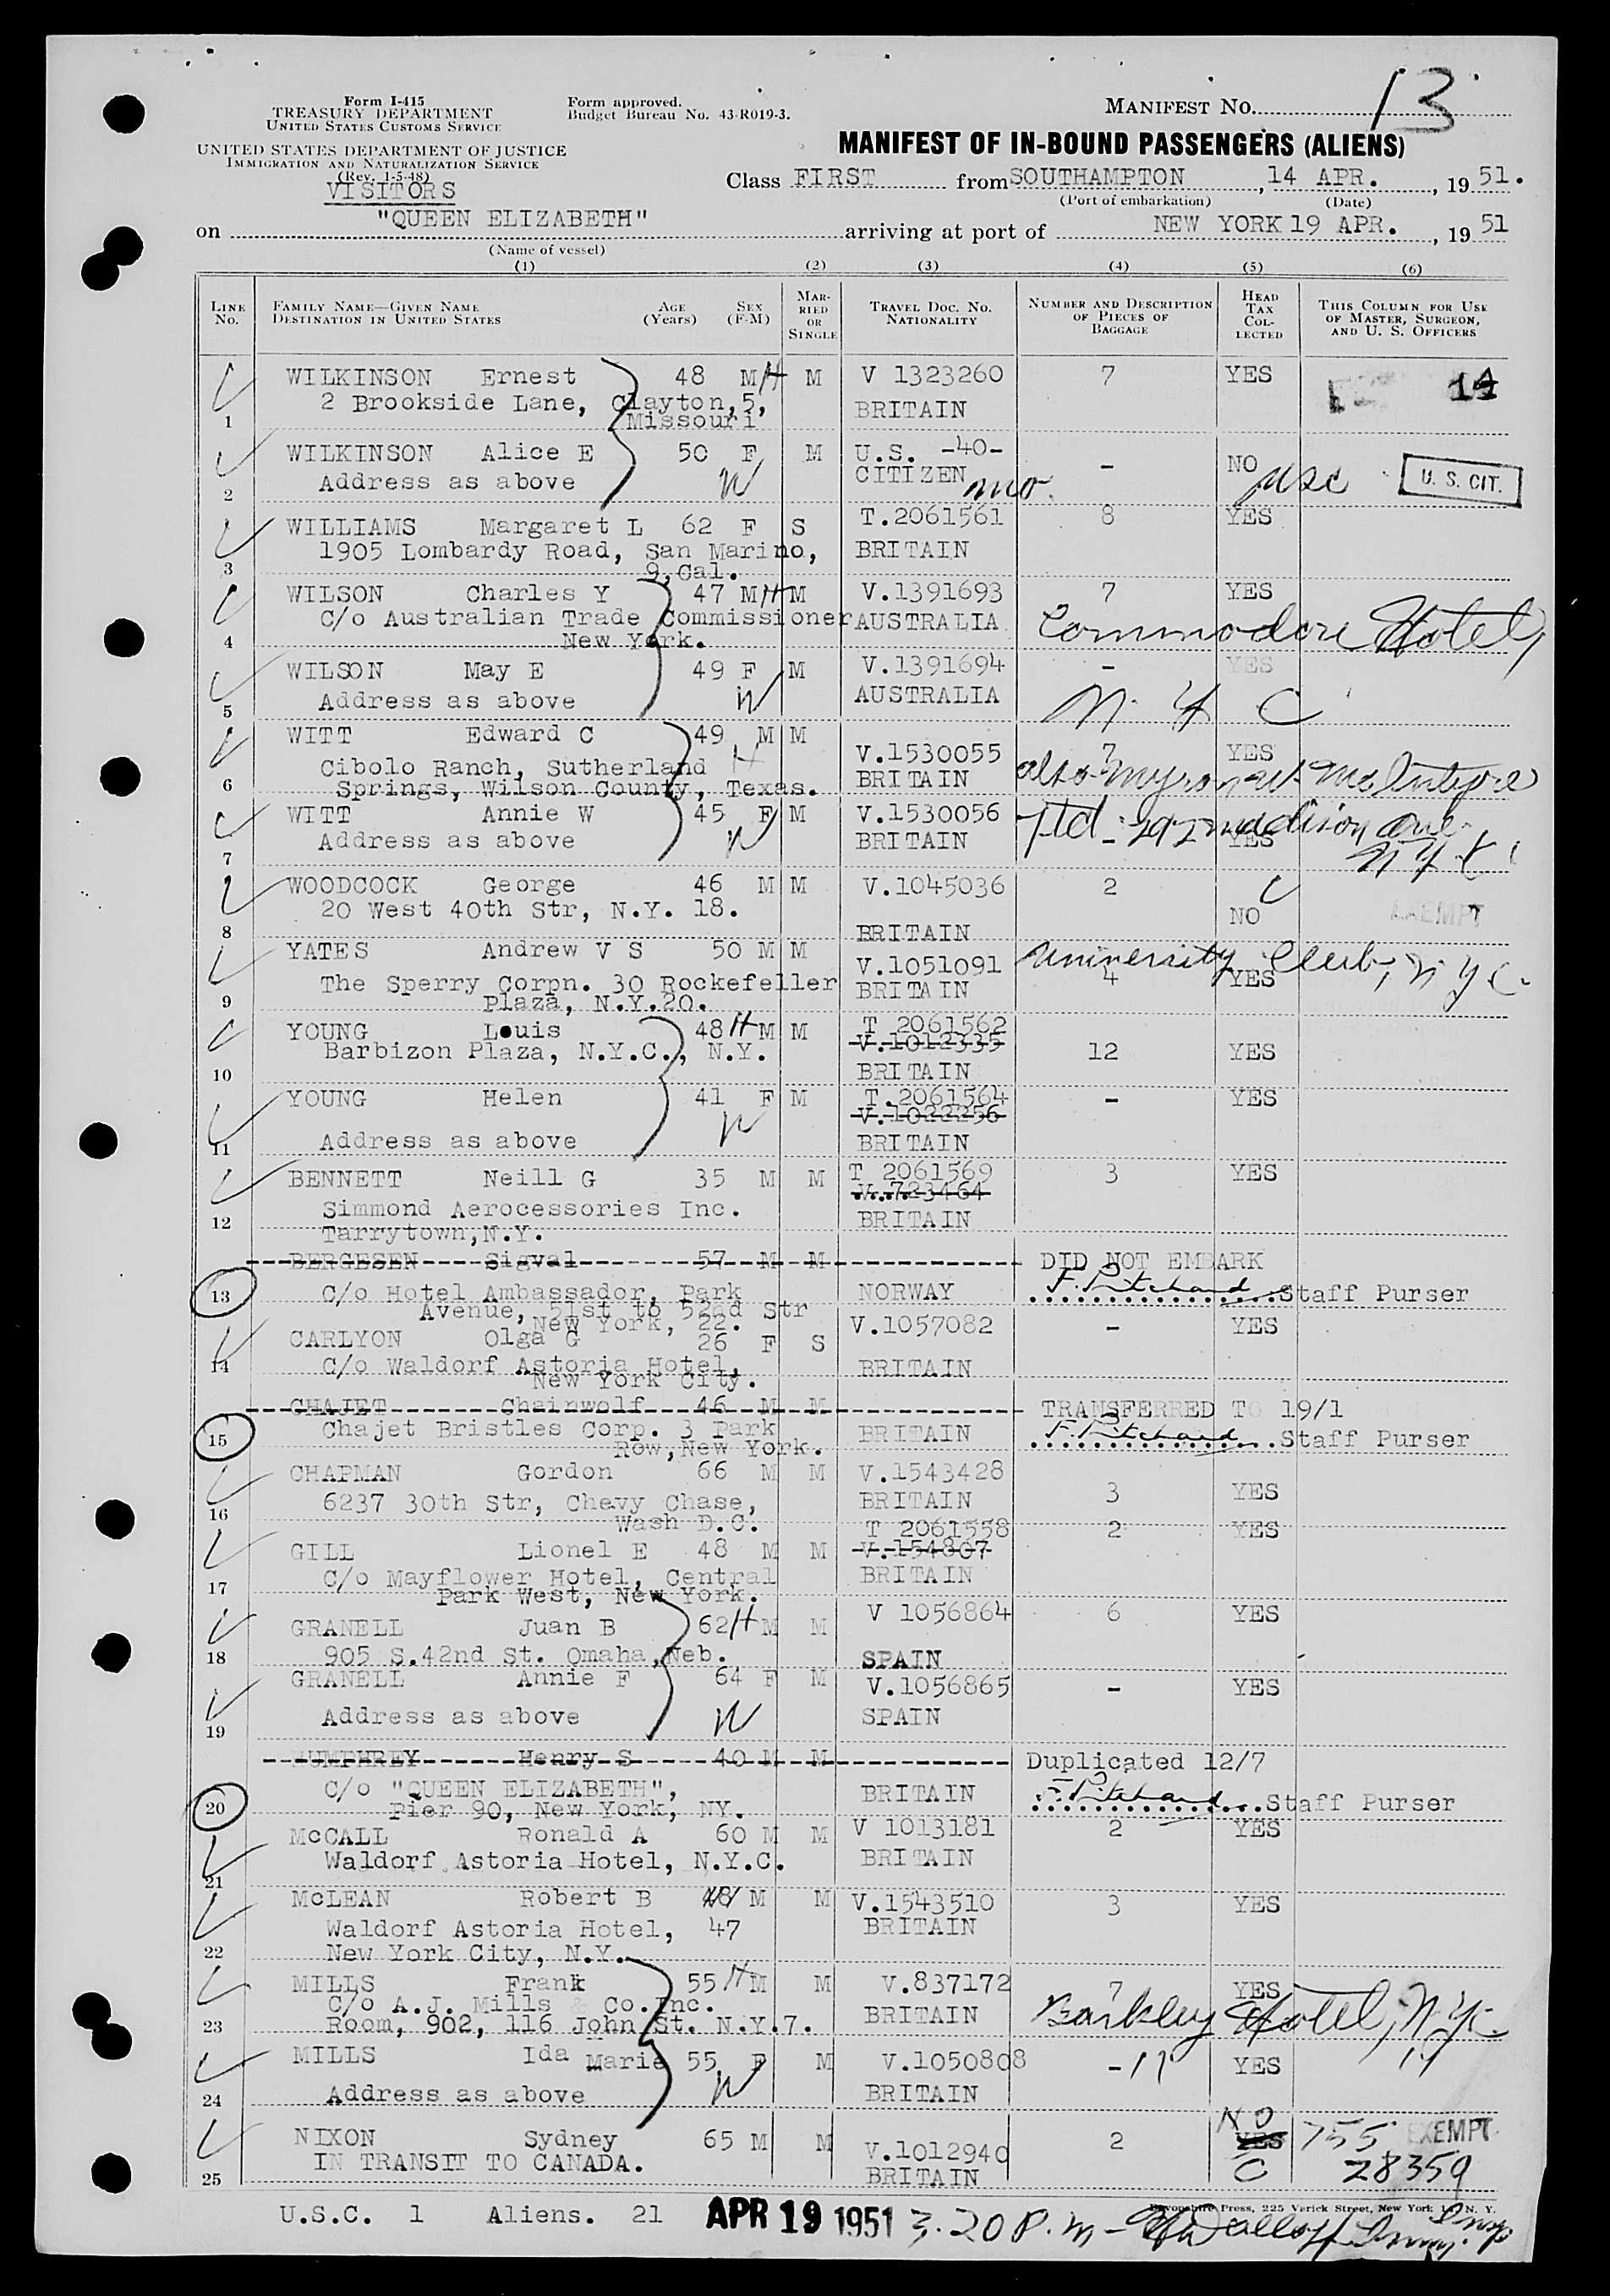 13
Form I-415
TREASURY DEPARTMENT
UNITED STATES CUSTOMS SERVICE
Form approved.
Budget Bureau No. 43-R019-3.
MANIFEST NO.
UNITED STATES DEPARTMENT OF JUSTICE
IMMIGRATION AND NATURALIZATION SERVICE
(Rev. 1-5-48)
VISITORS
MANIFEST OF IN-BOUND PASSENGERS (ALIENS)
Class FIRST from SOUTHAMPTON, 14 APR., 19 51.
(Port of embarkation) (Date)
on "QUEEN ELIZABETH" arriving at port of NEW YORK 19 APR., 19 51
(Name of vessel)
(1) (2) (3) (4) (5) (6)
LINE No. FAMILY NAME—GIVEN NAME DESTINATION IN UNITED STATES AGE (Years) SEX (F-M) MARRIED OR SINGLE TRAVEL DOC. NO. NATIONALITY NUMBER AND DESCRIPTION OF PIECES OF BAGGAGE HEAD TAX COLLECTED THIS COLUMN FOR USE OF MASTER, SURGEON, AND U. S. OFFICERS
WILKINSON Ernest 48 M H M V 1323260 7 YES 14
2 Brookside Lane, Clayton,5, BRITAIN
1 Missouri
WILKINSON Alice E 50 F M U.S. -40- - NO usc U. S. CIT.
2 Address as above W CITIZEN mo.
WILLIAMS Margaret L 62 F S T.2061561 8 YES
1905 Lombardy Road, San Marino, BRITAIN
3 9,Cal.
WILSON Charles Y 47 M H M V.1391693 7 YES
C/o Australian Trade Commissioner AUSTRALIA Commodore Hotel,
4 New York.
WILSON May E 49 F M V.1391694 - YES
5 Address as above W AUSTRALIA N. Y C
WITT Edward C 49 M M V.1530055 7 YES
Cibolo Ranch, Sutherland H BRITAIN also
6 Springs, Wilson County, Texas.
WITT Annie W 45 F M V.1530056 Ltd - 292 madison ave.
7 Address as above W BRITAIN - YES N Y C
WOODCOCK George 46 M M V.1045036 2 C
20 West 40th Str, N.Y. 18. NO EXEMPT
8 BRITAIN
YATES Andrew V S 50 M M V.1051091 University Club, N Y C.
The Sperry Corpn. 30 Rockefeller BRITAIN 4 YES
9 Plaza, N.Y.20.
YOUNG Louis 48 H M M T 2061562
V.1012335
Barbizon Plaza, N.Y.C., N.Y. 12 YES
10 BRITAIN
YOUNG Helen 41 F M T.2061564 - YES
W V.1022256
11 Address as above BRITAIN
BENNETT Neill G 35 M M T 2061569 3 YES
V.723464
12 Simmond Aerocessories Inc. BRITAIN
Tarrytown,N.Y.
BERGESEN Sigval 57 M M DID NOT EMBARK
13 C/o Hotel Ambassador, Park NORWAY F. Pritchard Staff Purser
Avenue, 51st to 52nd Str
New York, 22.
CARLYON Olga G 26 F S V.1057082 - YES
14 C/o Waldorf Astoria Hotel, BRITAIN
New York City.
CHAJET Chainwolf 46 M M TRANSFERRED TO 19/1
15 Chajet Bristles Corp. 3 Park BRITAIN F. Pritchard Staff Purser
Row,New York.
CHAPMAN Gordon 66 M M V.1543428
16 6237 30th Str, Chevy Chase, BRITAIN 3 YES
Wash D.C.
T 2061558 2 YES
GILL Lionel E 48 M M V.154807
17 C/o Mayflower Hotel, Central BRITAIN
Park West, New York.
GRANELL Juan B 62 H M M V 1056864 6 YES
18 905 S.42nd St. Omaha,Neb. SPAIN
GRANELL Annie F 64 F M V.1056865 - YES
19 Address as above W SPAIN
HUMPHREY Henry S 40 M M Duplicated 12/7
20 C/o "QUEEN ELIZABETH", BRITAIN F. Pritchard Staff Purser
Pier 90, New York, NY.
McCALL Ronald A 60 M M V 1013181 2 YES
21 Waldorf Astoria Hotel, N.Y.C. BRITAIN
McLEAN Robert B 48 M M V.1543510 3 YES
Waldorf Astoria Hotel, 47 BRITAIN
22 New York City, N.Y.
MILLS Frank 55 H M M V.837172 7 YES
C/o A.J. Mills & Co.Inc. BRITAIN Barkley Hotel, N.Y.C.
23 Room, 902, 116 John St. N.Y.7.
MILLS Ida Marie 55 F M V.1050808 - 11 YES 11
24 Address as above W BRITAIN
NIXON Sydney 65 M M V.1012940 2 NO YES 755 EXEMPT
25 IN TRANSIT TO CANADA. BRITAIN C 28359
Devonshire Press, 225 Varick Street, New York 14, N. Y.
U.S.C. 1 Aliens. 21 APR 19 1951 3.20 P.m -